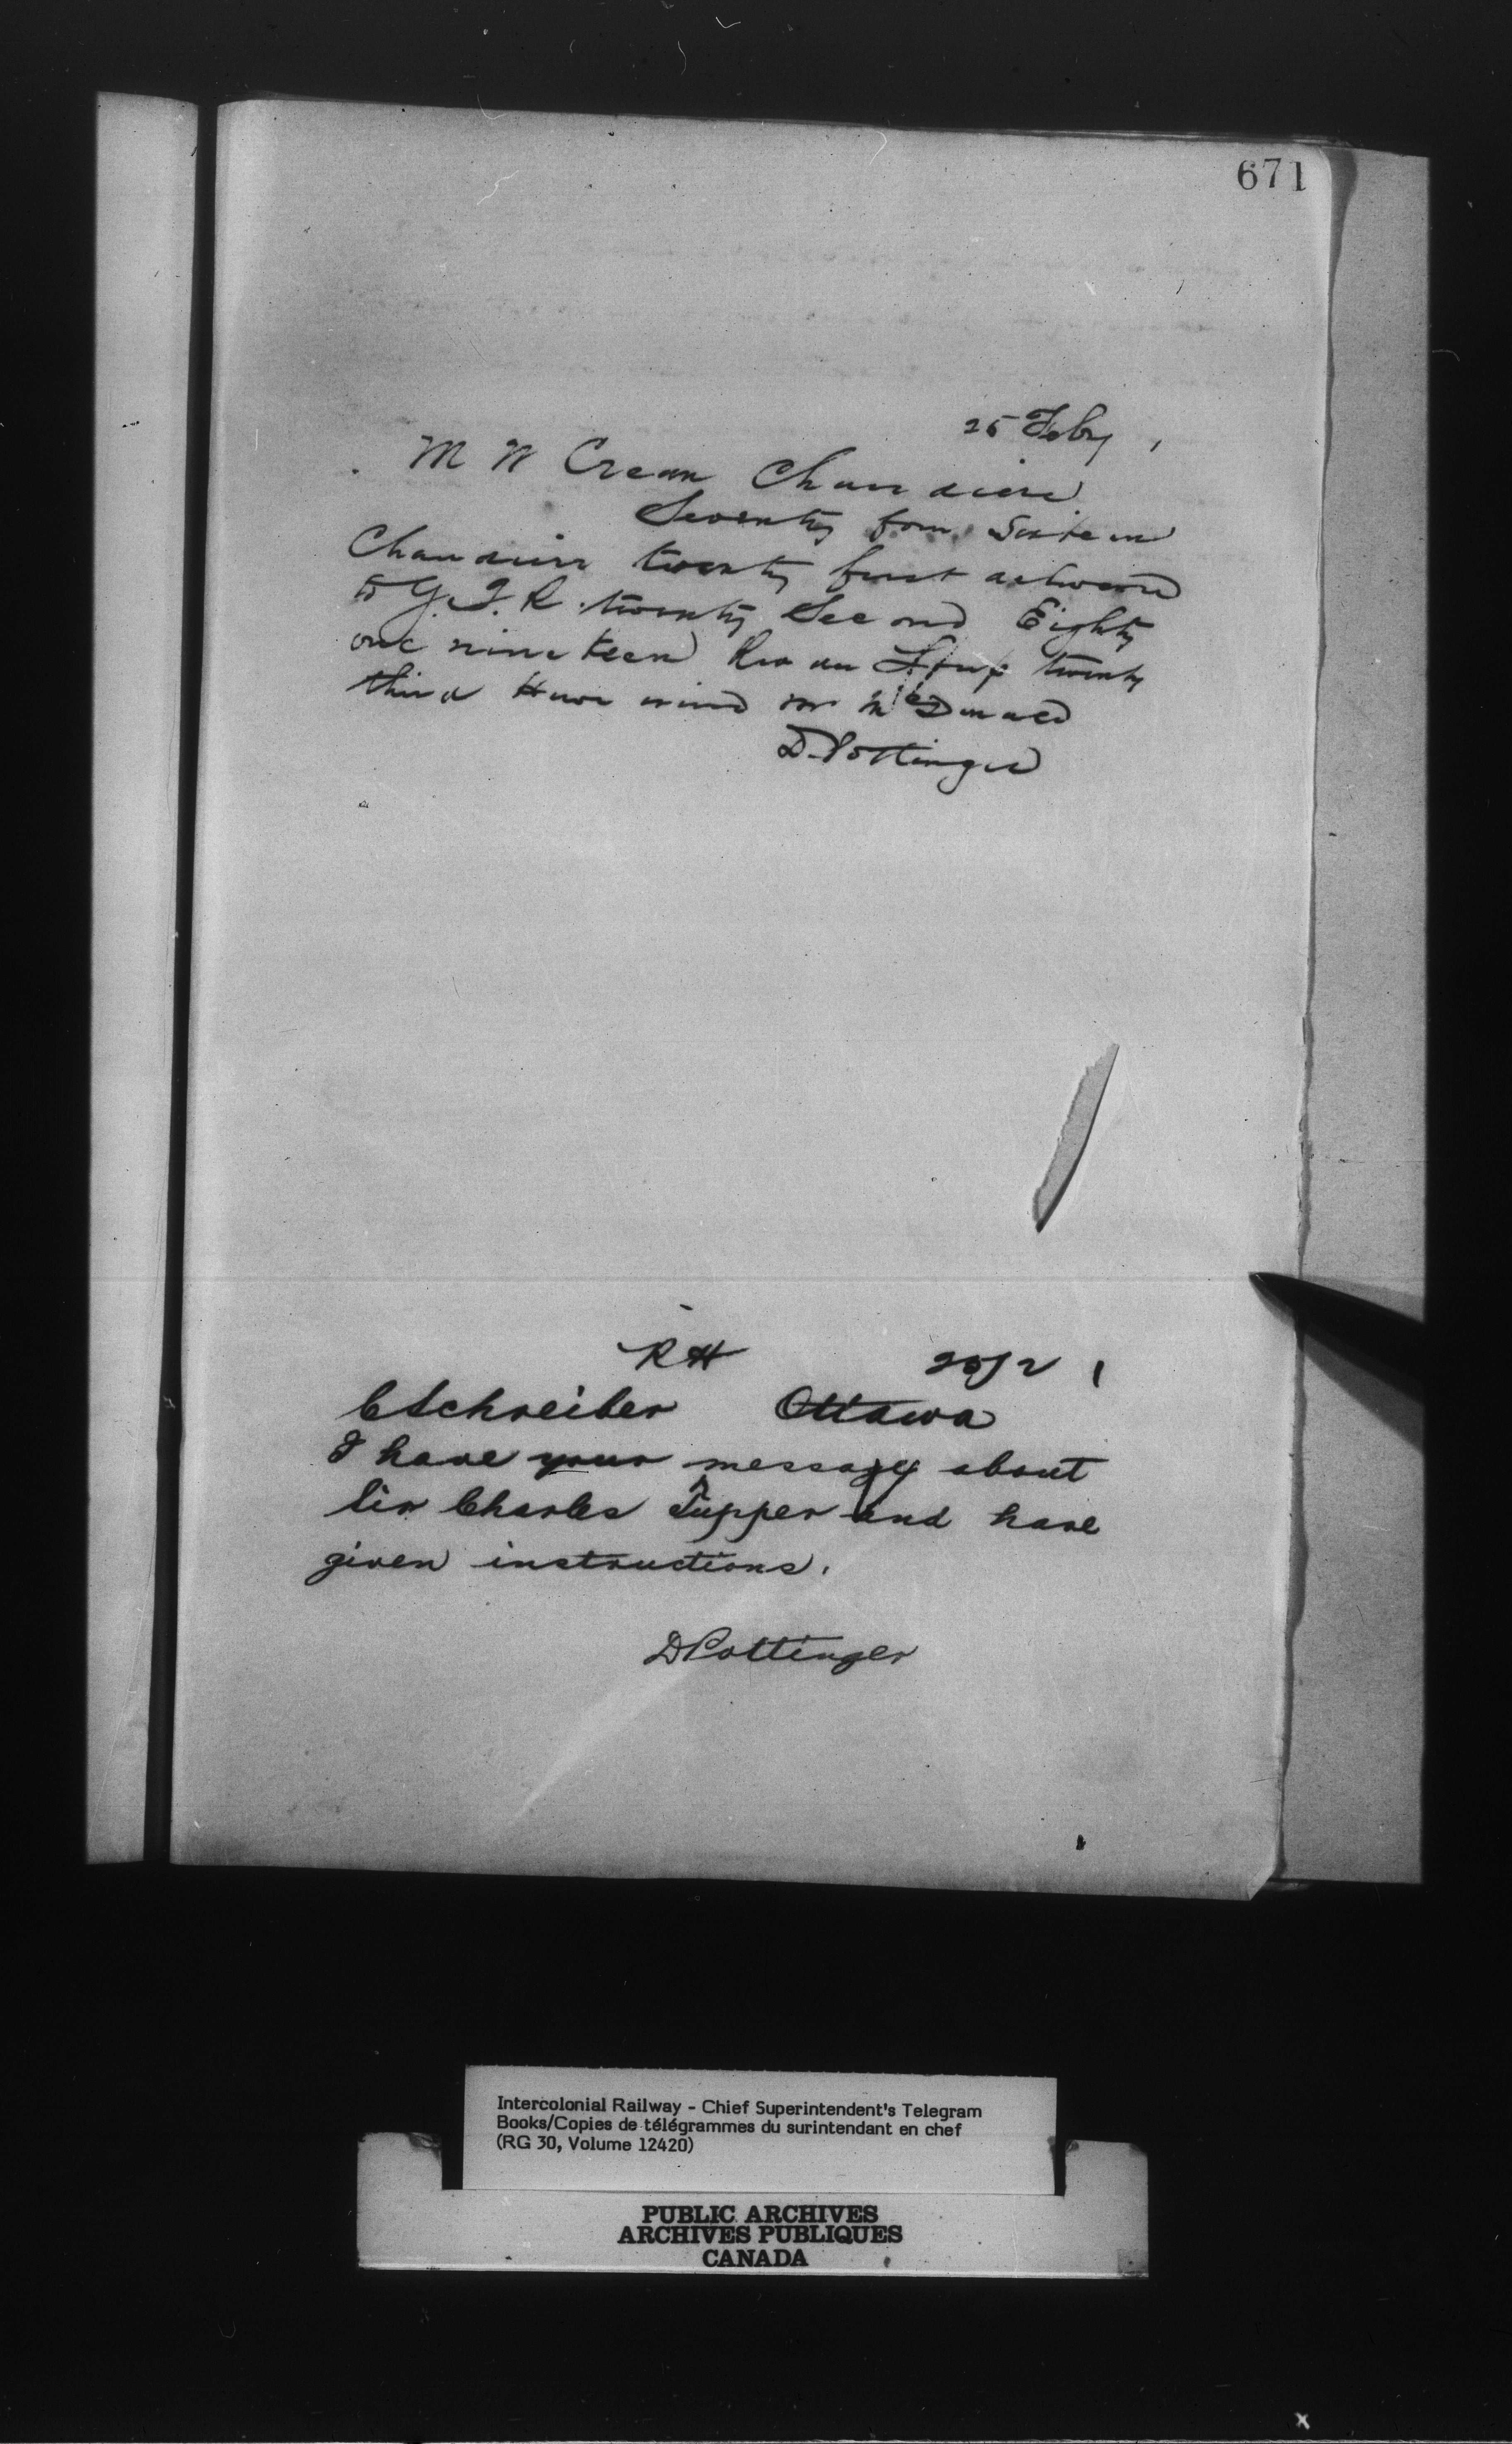 671
25 Feby
M W Crean Chaudiere
Seventy four Sixteen
Chaudiere twenty first
to G.T.R. twenty Second Eighty
one nineteen River Loup twenty
third Have wired Mr McDonald
D. Pottinger
RH 25/2
C Schreiber Ottawa
I have your message about
Sir Charles Tupper and have
given instructions.
D Pottinger
Intercolonial Railway - Chief Superintendent's Telegram
Books/Copies de télégrammes du surintendant en chef
(RG 30, Volume 12420)
PUBLIC ARCHIVES
ARCHIVES PUBLIQUES
CANADA
x